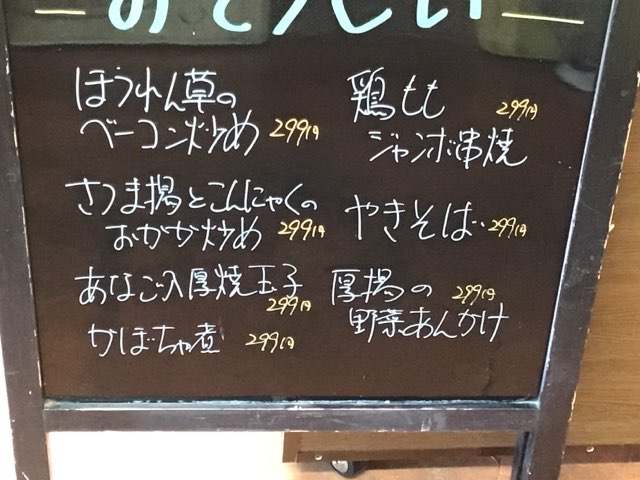 おそうざい
ほうれん草の
ベーコン炒め 299円
さつま揚とこんにゃくの
おかか炒め 299円
あなご入厚焼玉子
299円
かぼちゃ煮 299円
鶏もも 299円
ジャンボ串焼
やきそば 299円
厚揚の 299円
野菜あんかけ